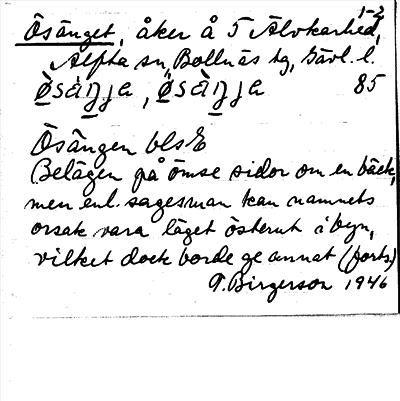 1-2
Ösänget, åker å 5 Älvkarhed,
Alfta sn, Bollnäs tg, Gävl. l.
85
Ösängen bls E
Belägen på ömse sidor om en bäck,
men enl. sagesman kan namnets
orsak vara läget österut i byn,
vilket dock borde ge annat (forts)
T. Birgerson 1946